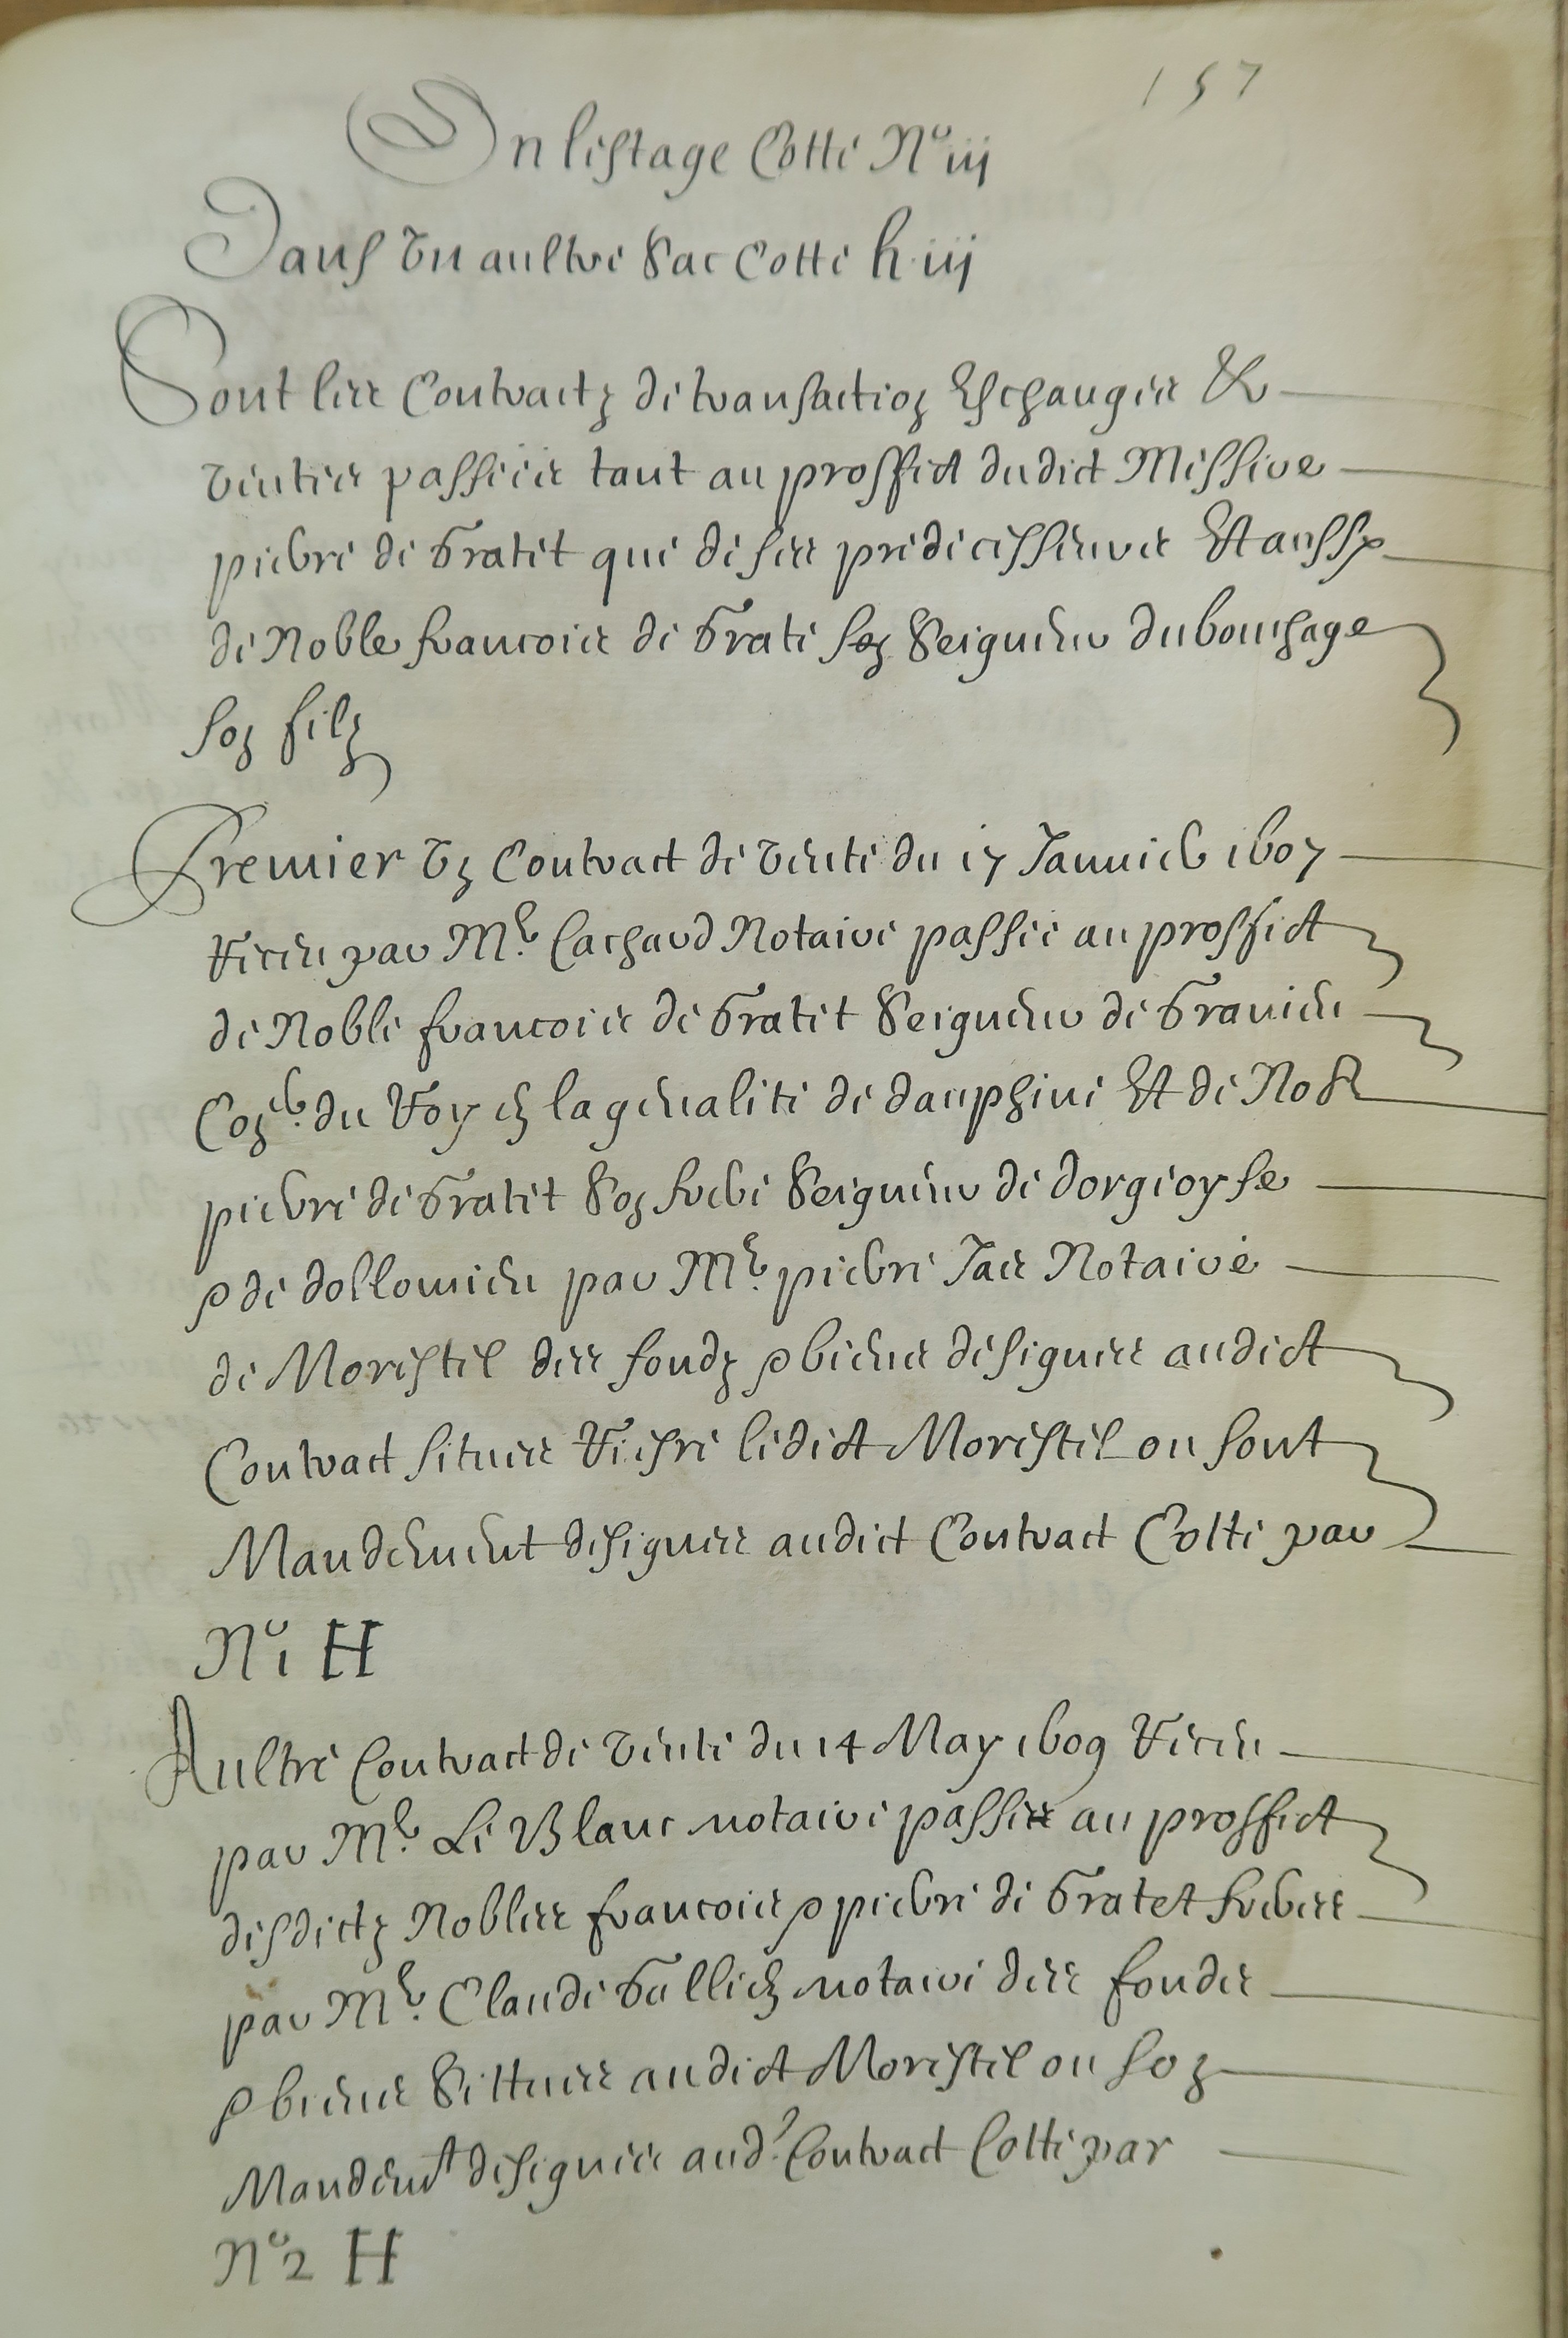 157
En lestage Cotté N° iij
Dans vn aultre sac cotté h iij
Sont les Contractz de transaction Eschanges &
ventes passées tant au proffict dudict Messire
pierre de Gratet que de ses predecesseurs Et aussy
de Noble francois de Grate son Seigneur du bouchage
son filz
Premier vn Contract de vente du 17 Januier 1607
Receu par Me. Cachard Notaire passée au proffict
de Noble francois de Gratet Seigneur de Granieu
Coner. du Roy en la generalité de dauphiné Et de Nob
pierre de Gratet son frere Seigneur de dorgeoyse
& de dollomieu par Me. pierre Jas Notaire
de Morestel des fondz & biens designés audict
Contract situés Riesre ledict Morestel ou sont
Mandement designés audict Contract Cotté par
N° 1 H
Aultre Contract de vente du 14 May 1609 Receu
par Me. Le Blanc notaire passée au proffict
desdictz Nobles francois & pierre de Gratet freres
par Me. Claude Gallien notaire des fondes
& biens sittués audict Morestel ou son
Mandemt designés aud. Contract Cotté par
N° 2 H